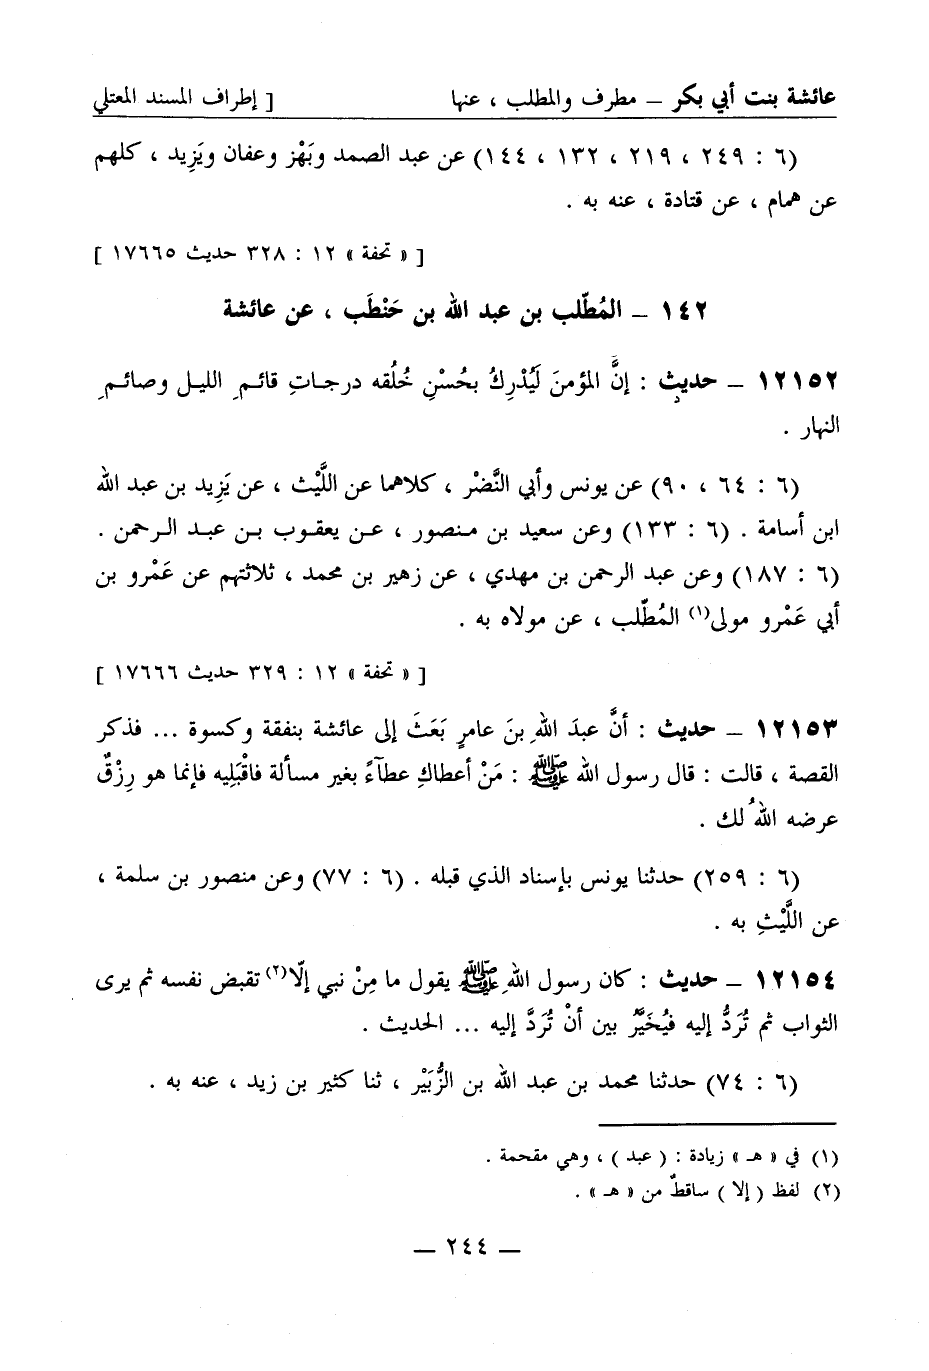 عائشة بنت أبي بكر – مطرف والمطلب ، عنها [ إطراف المسند المعتلي
(٦ : ٢٤٩ ، ٢١٩ ، ١٣٢ ، ١٤٤) عن عبد الصمد وبَهْز وعفان ويَزِيد ، كلهم
عن همام ، عن قتادة ، عنه به .
[ « تحفة » ١٢ : ٣٢٨ حديث ١٧٦٦٥ ]
١٤٢ – المُطّلب بن عبد الله بن حَنْطَب ، عن عائشة
١٢١٥٢ – حديث : إنَّ المؤمنَ لَيُدْرِكُ بحُسْنِ خُلُقه درجـاتِ قائـمِ الليـل وصائـمِ
النهار .
(٦ : ٦٤ ، ٩٠) عن يونس وأبي النَّضْر ، كلاهما عن اللَّيْث ، عن يَزِيد بن عبد الله
ابن أسامة . (٦ : ١٣٣) وعن سعيد بن منصور ، عن يعقوب بن عبد الرحمن .
(٦ : ١٨٧) وعن عبد الرحمن بن مهدي ، عن زهير بن محمد ، ثلاثتهم عن عَمْرو بن
أبي عَمْرو مولى(١) المُطّلب ، عن مولاه به .
[ « تحفة » ١٢ : ٣٢٩ حديث ١٧٦٦٦ ]
١٢١٥٣ – حديث : أنَّ عبدَ اللهِ بنَ عامرٍ بَعَثَ إلى عائشة بنفقة وكسوة ... فذكر
القصة ، قالت : قال رسول الله ﷺ : مَنْ أعطاكِ عطآءً بغير مسألة فاقْبَلِيه فإنما هو رِزْقٌ
عرضه اللهُ لك .
(٦ : ٢٥٩) حدثنا يونس بإسناد الذي قبله . (٦ : ٧٧) وعن منصور بن سلمة ،
عن اللَّيْثِ به .
١٢١٥٤ – حديث : كان رسول اللهِ ﷺ يقول ما مِنْ نبي إلّا(٢) تقبض نفسه ثم يرى
الثواب ثم تُرَدُّ إليه فيُخَيَّرُ بين أنْ تُرَدَّ إليه ... الحديث .
(٦ : ٧٤) حدثنا محمد بن عبد الله بن الزُّبَيْر ، ثنا كثير بن زيد ، عنه به .
(١) في « هـ » زيادة : ( عبد ) ، وهي مقحمة .
(٢) لفظ ( إلا ) ساقطٌ من « هـ » .
– ٢٤٤ –